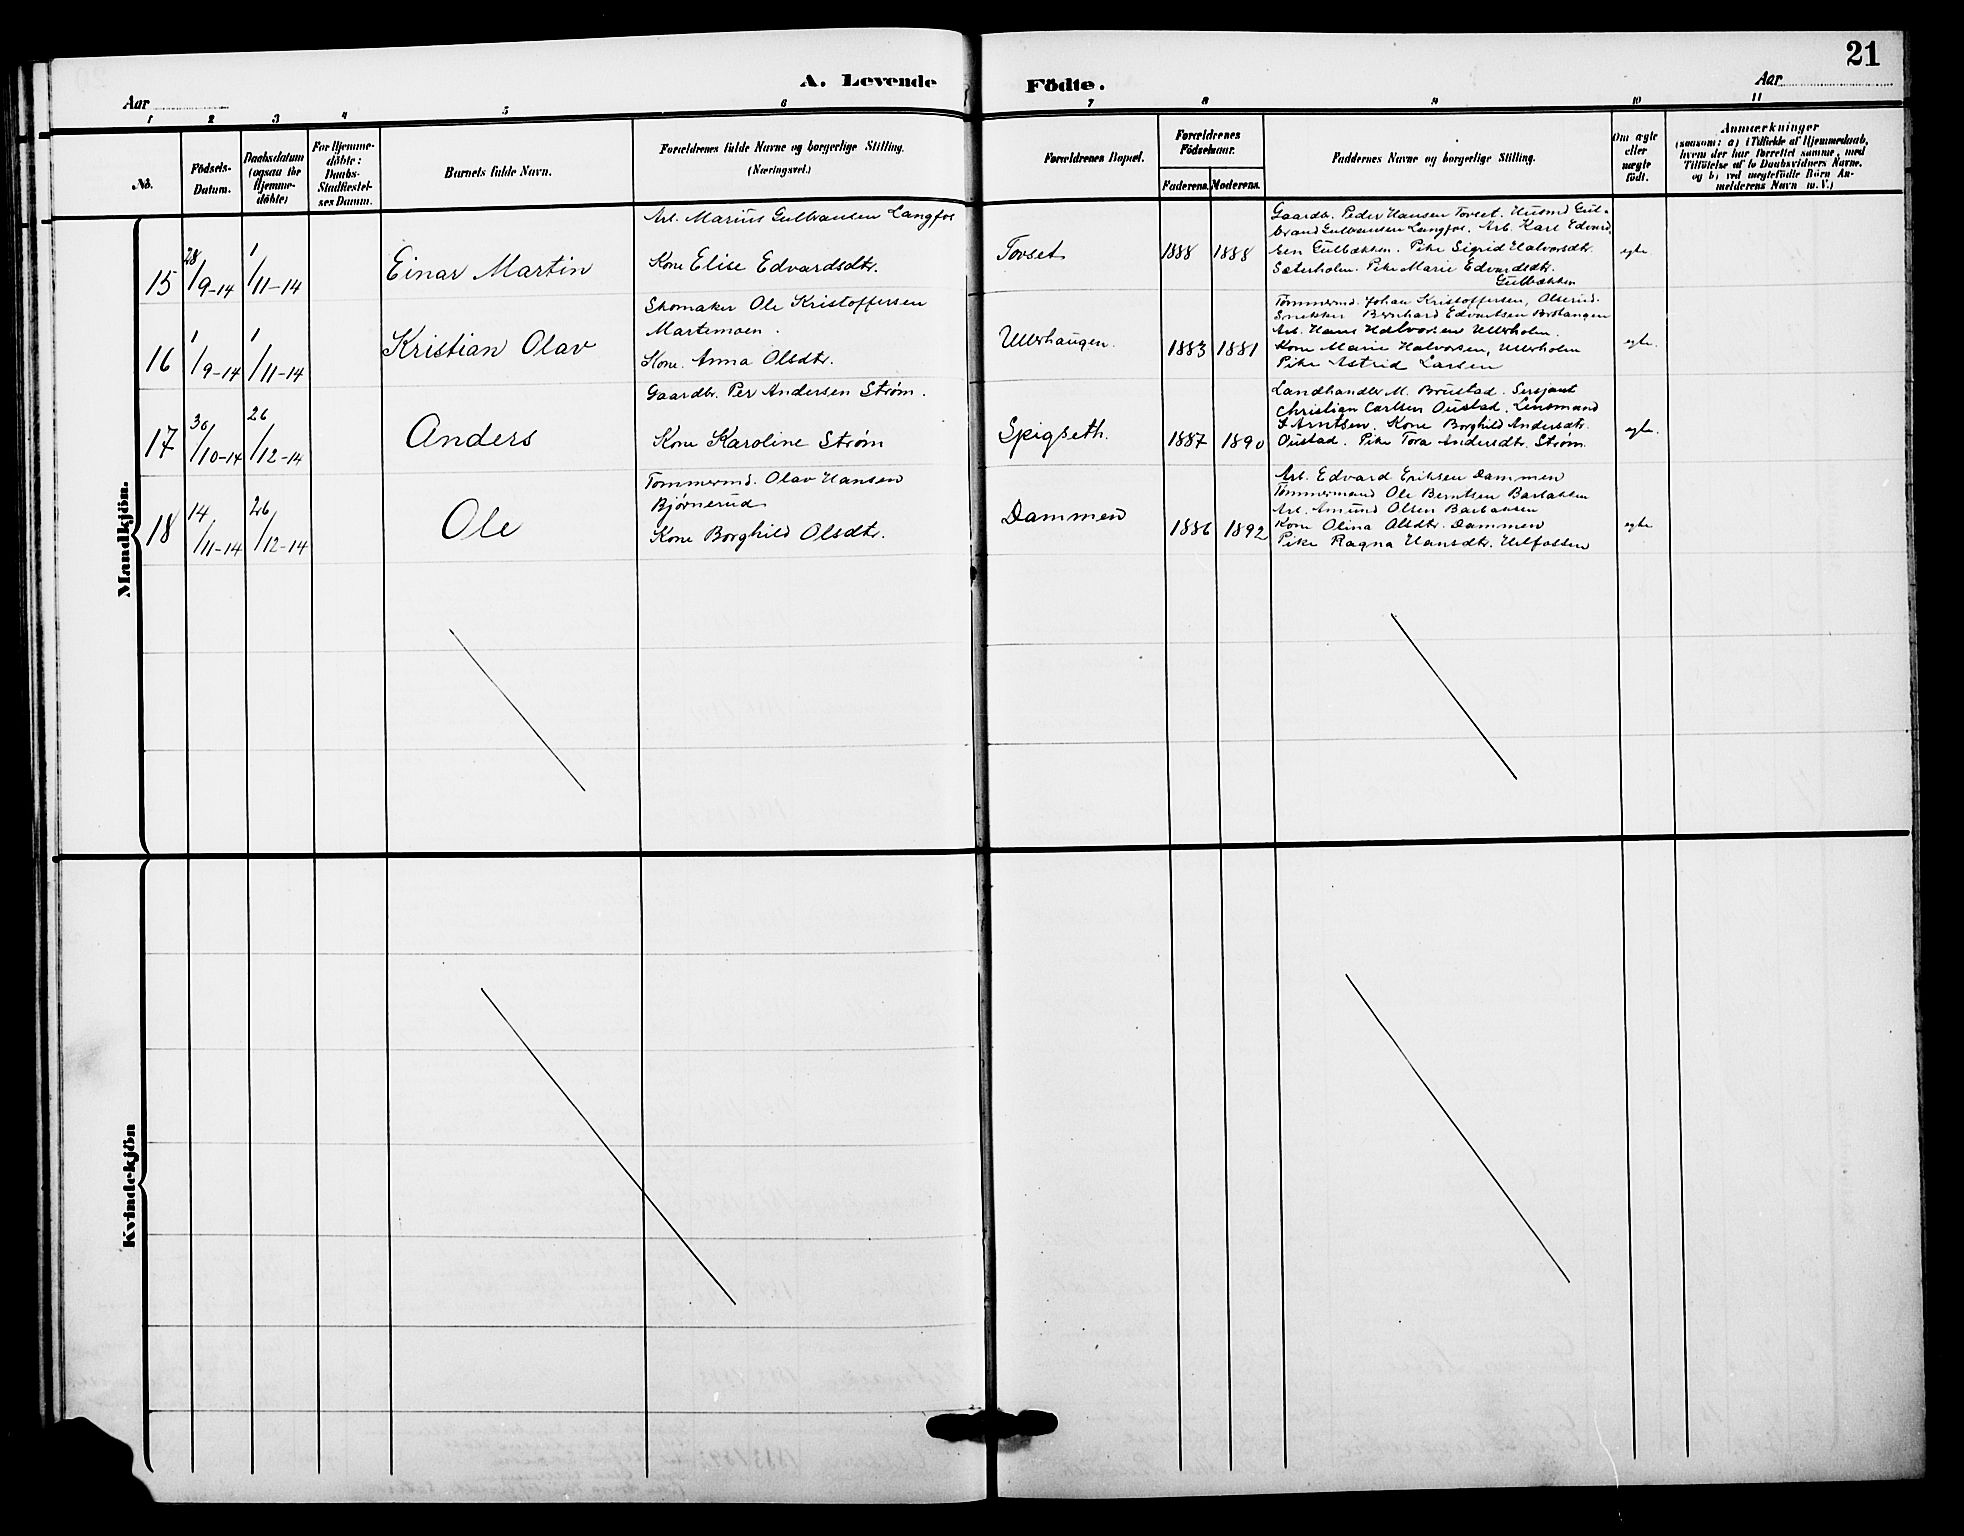 21
A. Levende Födte.
Aar
Aar
1 2 3 4 5 6 7 8 9 10 11
No.
Födsels-
Datum.
Daabsdatum
(ogsaa for
Hjemme-
döbte)
For Hjemme-
döbte:
Daabs-
Stadfæstel-
ses Datum.
Barnets fulde Navn.
Forældrenes fulde Navne og borgerlige Stilling.
(Næringsvei.)
Forældrenes Bopæl.
Forældrenes
Födselsaar.
Faderens. Moderens.
Faddernes Navne og borgerlige Stilling.
Om ægte
eller
uægte
födt.
Anmærkninger
(saasom: a) i Tilfælde af Hjemmedaab,
hvem der har forrettet samme, med
Tilföielse af to Daabsvidners Navne,
og b) ved uægtefödte Börn An-
melderens Navn o. V.)
Mandkjön.
15
28/9-14
1/11-14
Einar Martin
Arb. Marius Gulbransen Langfos
Kone Elise Edvardsdtr.
Torset
1888 1888
Gaardbr. Peder Hansen Torset. Husmd Gul-
brand Gulbransen Langfos. Arb. Karl Edvard-
sen Gulbækken. Pike Sigrid Halvorsdtr.
Sæterholm. Pike Marie Edvardsdtr.
Gulbækken
egte
16
1/9-14
1/11-14
Kristian Olav
Skomaker Ole Kristoffersen
Martemoen.
Kone Anna Olsdtr.
Ullerhaugen.
1883 1881
Tømmermd. Johan Kristoffersen,
Snekker Bernhard Edvartsen
Arb. Hans Halvorsen Ullerholm.
Kone Marie Halvorsen, Ullerholm
Pike Astrid Larsen
egte.
17
30/10-14
26/12-14
Anders
Gaardbr. Per Andersen Strøm.
Kone Karoline Strøm
Spigseth.
1887 1890
Landhandler M. Brustad. Sersjant
Christian Carlsen Oustad. Lensmand
Arntsen. Kone Borghild Andersdtr.
Oustad. Pike Tora Andersdtr. Strøm.
egte.
18
14/11-14
26/12-14
Ole
Tømmermd. Olav Hansen
Bjørnerud
Kone Borghild Olsdtr.
Dammen
1886 1892
Arb. Edvard Eriksen Dammen
Tømmermand Ole Berntsen Barbakken
Arb. Amund Olsen Barbakken
Kone Olina Olsdtr. Dammen
Pike Ragna Hansdtr. Ulfossen
egte
Kvindekjön